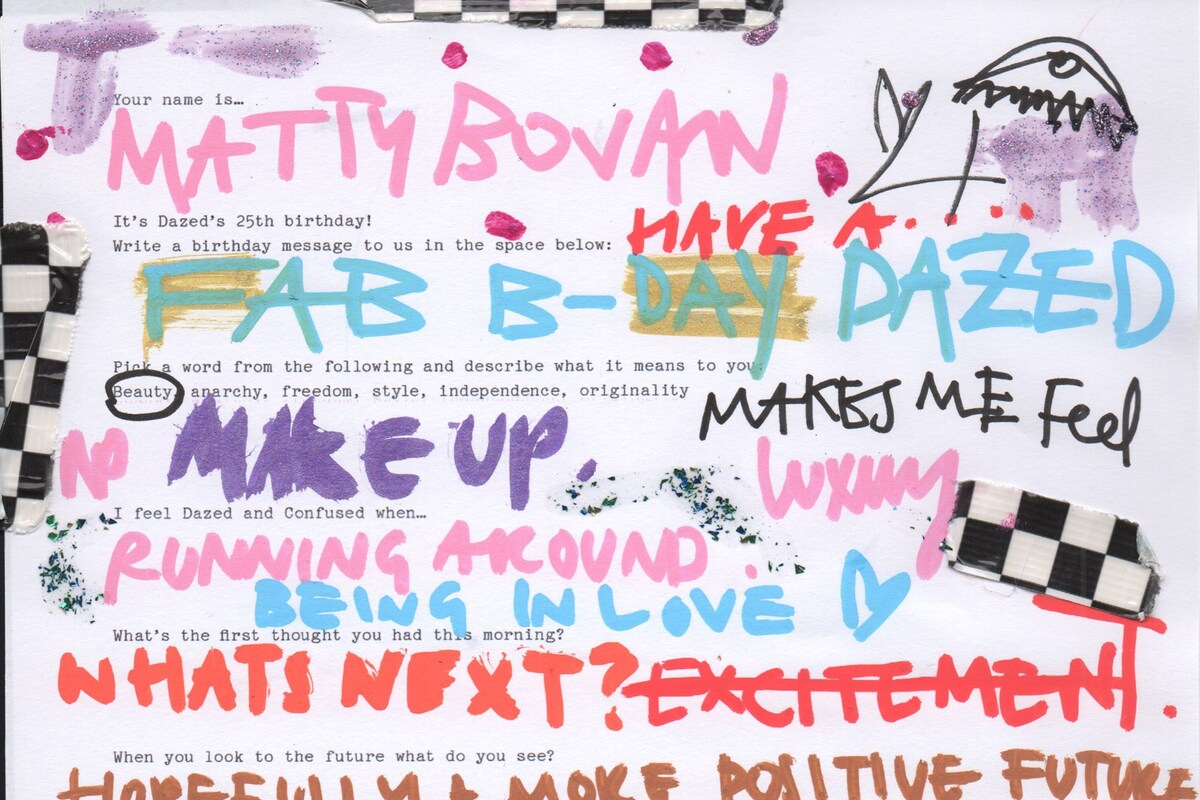 Your name is…
MATTY BOVAN
It's Dazed's 25th birthday!
Write a birthday message to us in the space below:
HAVE A....
FAB B-DAY DAZED
Pick a word from the following and describe what it means to you:
Beauty, anarchy, freedom, style, independence, originality
MAKES ME Feel
NO MAKE UP.
luxury
I feel Dazed and Confused when…
RUNNING AROUND.
BEING IN LOVE
What's the first thought you had this morning?
WHATS NEXT? EXCITEMENT.
When you look to the future what do you see?
HOPEFULLY A MORE POSITIVE FUTURE